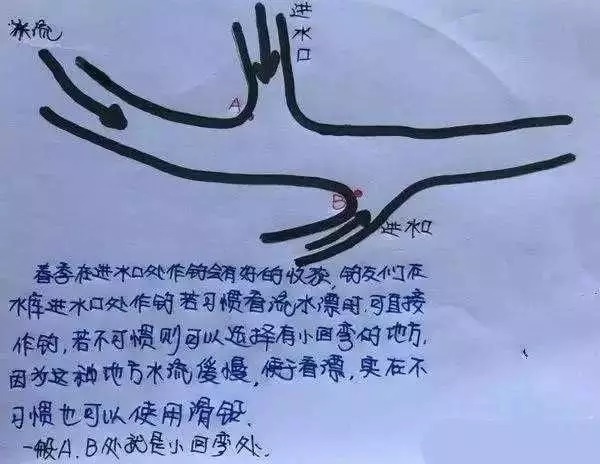 水流
进水口
A
B
进水口
春季在进水口处作钓会有好的收获,钓友们在
水库进水口处作钓若习惯看流水漂时,可直接
作钓,若不习惯则可以选择有小回弯的地方,
因为这种地方水流缓慢,便于看漂,实在不
习惯也可以使用滑铅.
一般A、B处就是小回弯处.